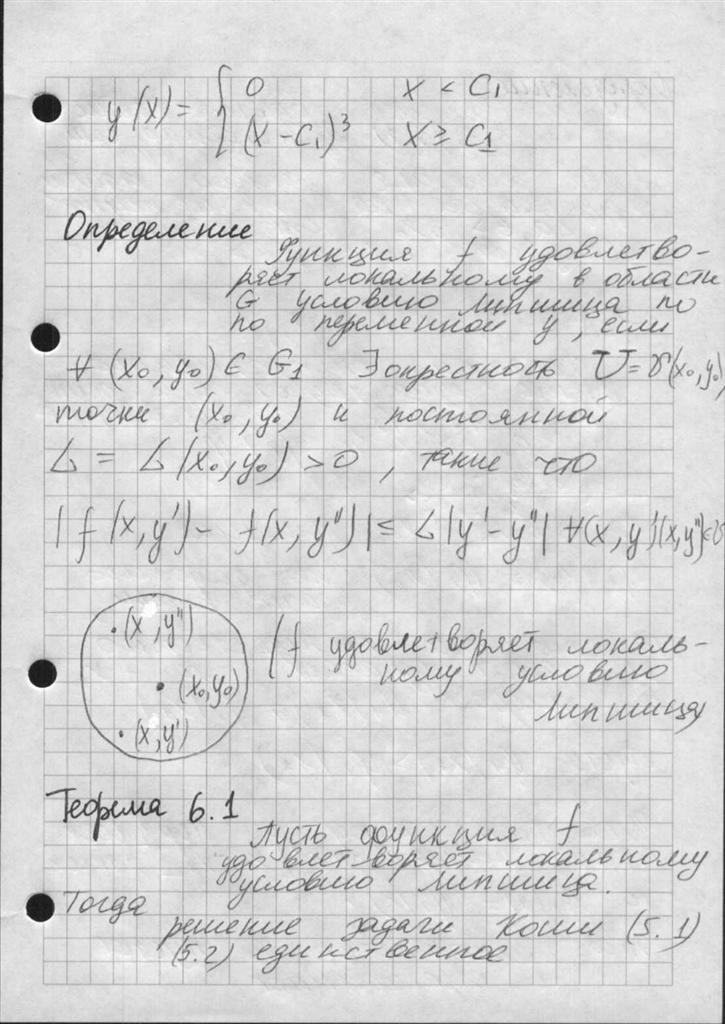 y(x) = { 0 x < C₁
(x - C₁)³ x ≥ C₁
Определение
Функция f удовлетво-
ряет локальному в области
G условию Липшица по
по переменной y, если
∀ (x₀, y₀) ∈ G₁ ∃ окрестность U = (x₀, y₀),
точки (x₀, y₀) и постоянной
L = L(x₀, y₀) > 0, такие что
|f(x, y') - f(x, y'')| ≤ L|y' - y''| ∀(x, y')(x, y'') ∈ U
(x, y'')
(x₀, y₀)
(x, y')
(f удовлетворяет локаль-
ному условию
Липшица)
Теорема 6.1
Пусть функция f
удовлетворяет локальному
условию Липшица.
Тогда
решение задачи Коши (5.1)
(5.2) единственное